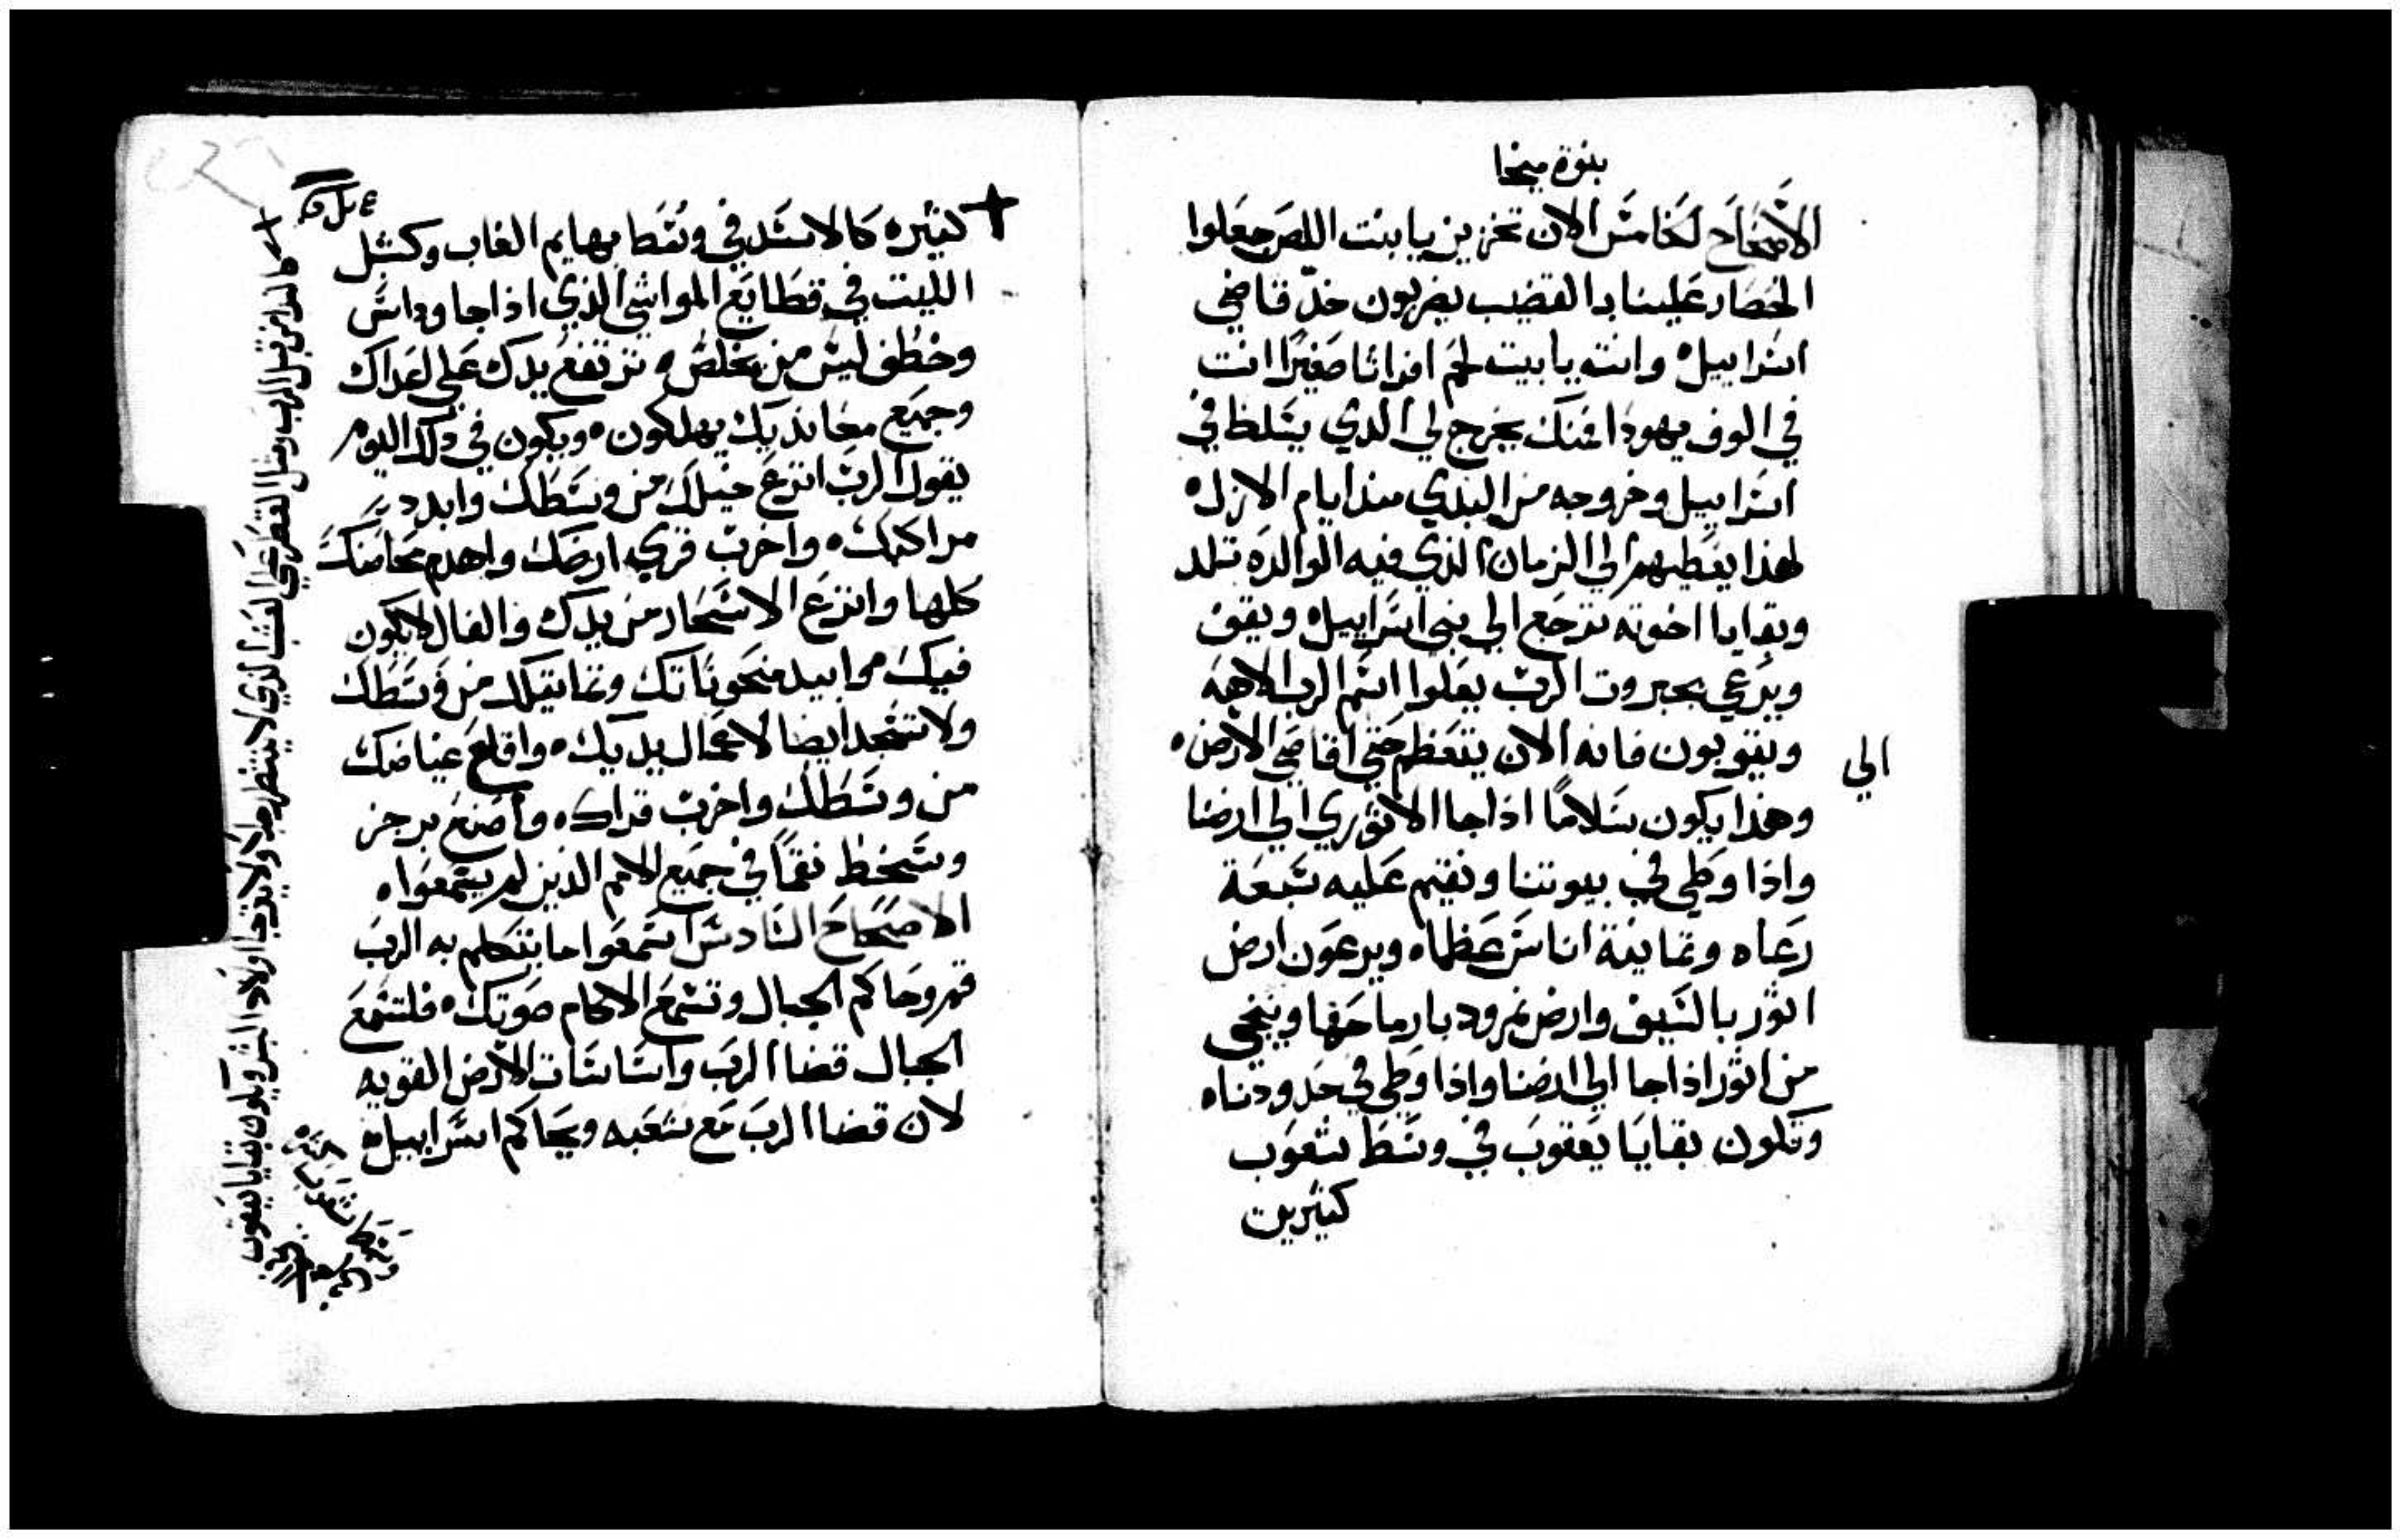 بنوة ميخا
الاصحاح الخامس الان تخربين يا بنت اللص جعلوا
الحصار علينا بالقضيب يضربون خد قاضي
اسراييل ه وانت يا بيت لحم افراتا صغيرا انت
في الوف يهودا فمنك يخرج لي الذي يتسلط في
اسراييل وخروجه من البدي منذ ايام الازل ه
لهذا يعطيهم الي الزمان الذي فيه الوالده تلد
وبقايا اخوته ترجع الي بني اسراييل ه ويقف
ويرعي بجبروت الرب بعلوا اسم الرب الاهه
ويتوبون فانه الان يتعظم حتي اقاصي الارض ه
الي
وهذا يكون سلاما اذا جا الاثوري الي ارضنا
واذا وطي في بيوتنا ونقيم عليه سبعة
رعاه وثمانية اناس عظما ه ويرعون ارض
اثور بالسيف وارض نمرود بارماحها وينجي
من اثور اذا جا الي ارضنا واذا وطي في حدودنا ه
وتكون بقايا يعقوب في وسط شعوب
كثيرين
كثيره كالاسد في وسط بهايم الغاب وكشبل
الليت في قطايع المواشي الذي اذا جا وداس
وخطف ليس من يخلص ه ترتفع يدك علي اعداك
وجميع معانديك يهلكون ه ويكون في ذلك اليوم
يقول الرب انزع خيلك من وسطك وابدد
مراكبك ه واخرب قري ارضك واهدم محاصنك
كلها وانزع الاسحار من يدك والفال لا يكون
فيك ه وابيد منحوتاتك وتماثيلك من وسطك
ولا تسجد ايضا لاعمال يديك ه واقلع غياضك
من وسطك واخرب قراك ه واصنع برجز
وسخط نقما في جميع الامم الذين لم يسمعوا ه
الاصحاح السادس اسمعوا ما يتكلم به الرب
قم وحاكم الجبال وتسمع الاكام صوتك ه فلتسمع
الجبال قضا الرب واساسات الارض القويه
لان قضا الرب مع شعبه ويحاكم اسراييل ه
كالندا من قبل الرب ومثل القطر علي العشب الذي لا ينتظر رجلا ولا يرتجا اولاد البشر ويكون بقايا يعقوب